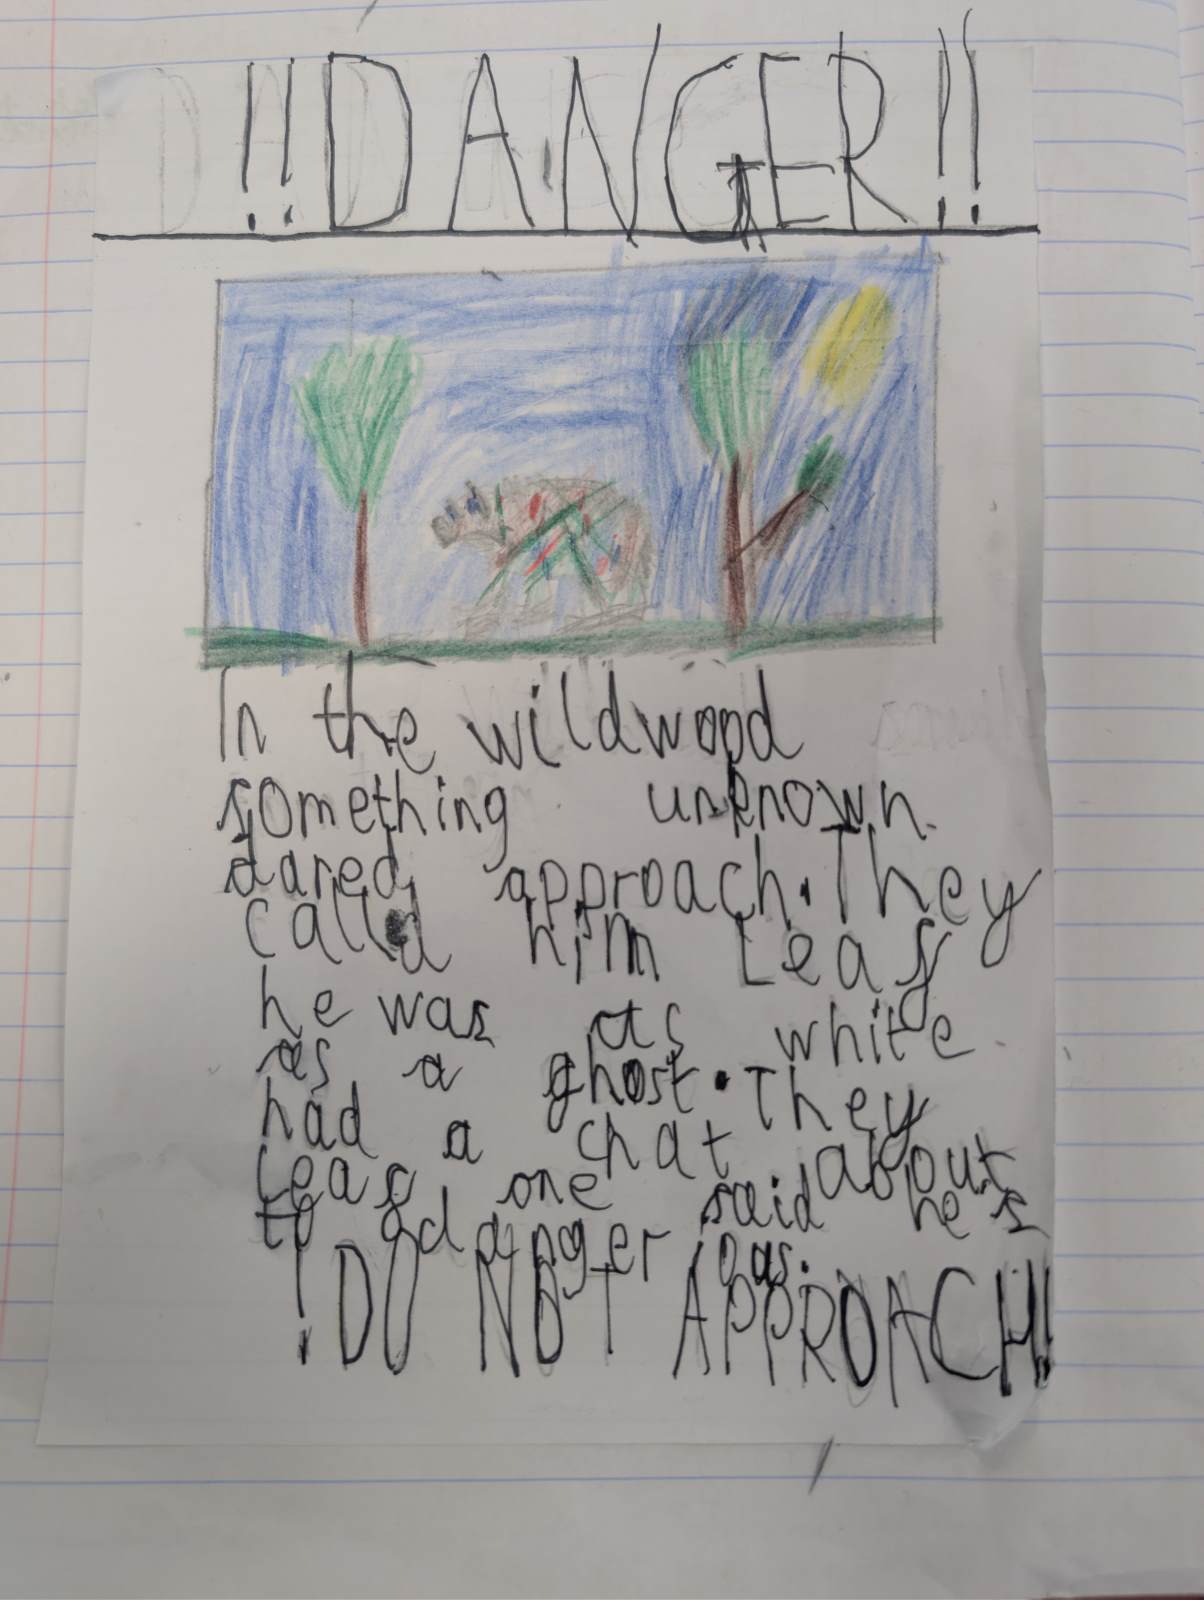 !!DANGER!!
In the wildwood
something unknown
dared approach. They
calld him Leag
he was as white
as a ghost. They
had a chat about
Leag one said he's
to dangerous.
!DO NOT APPROACH!